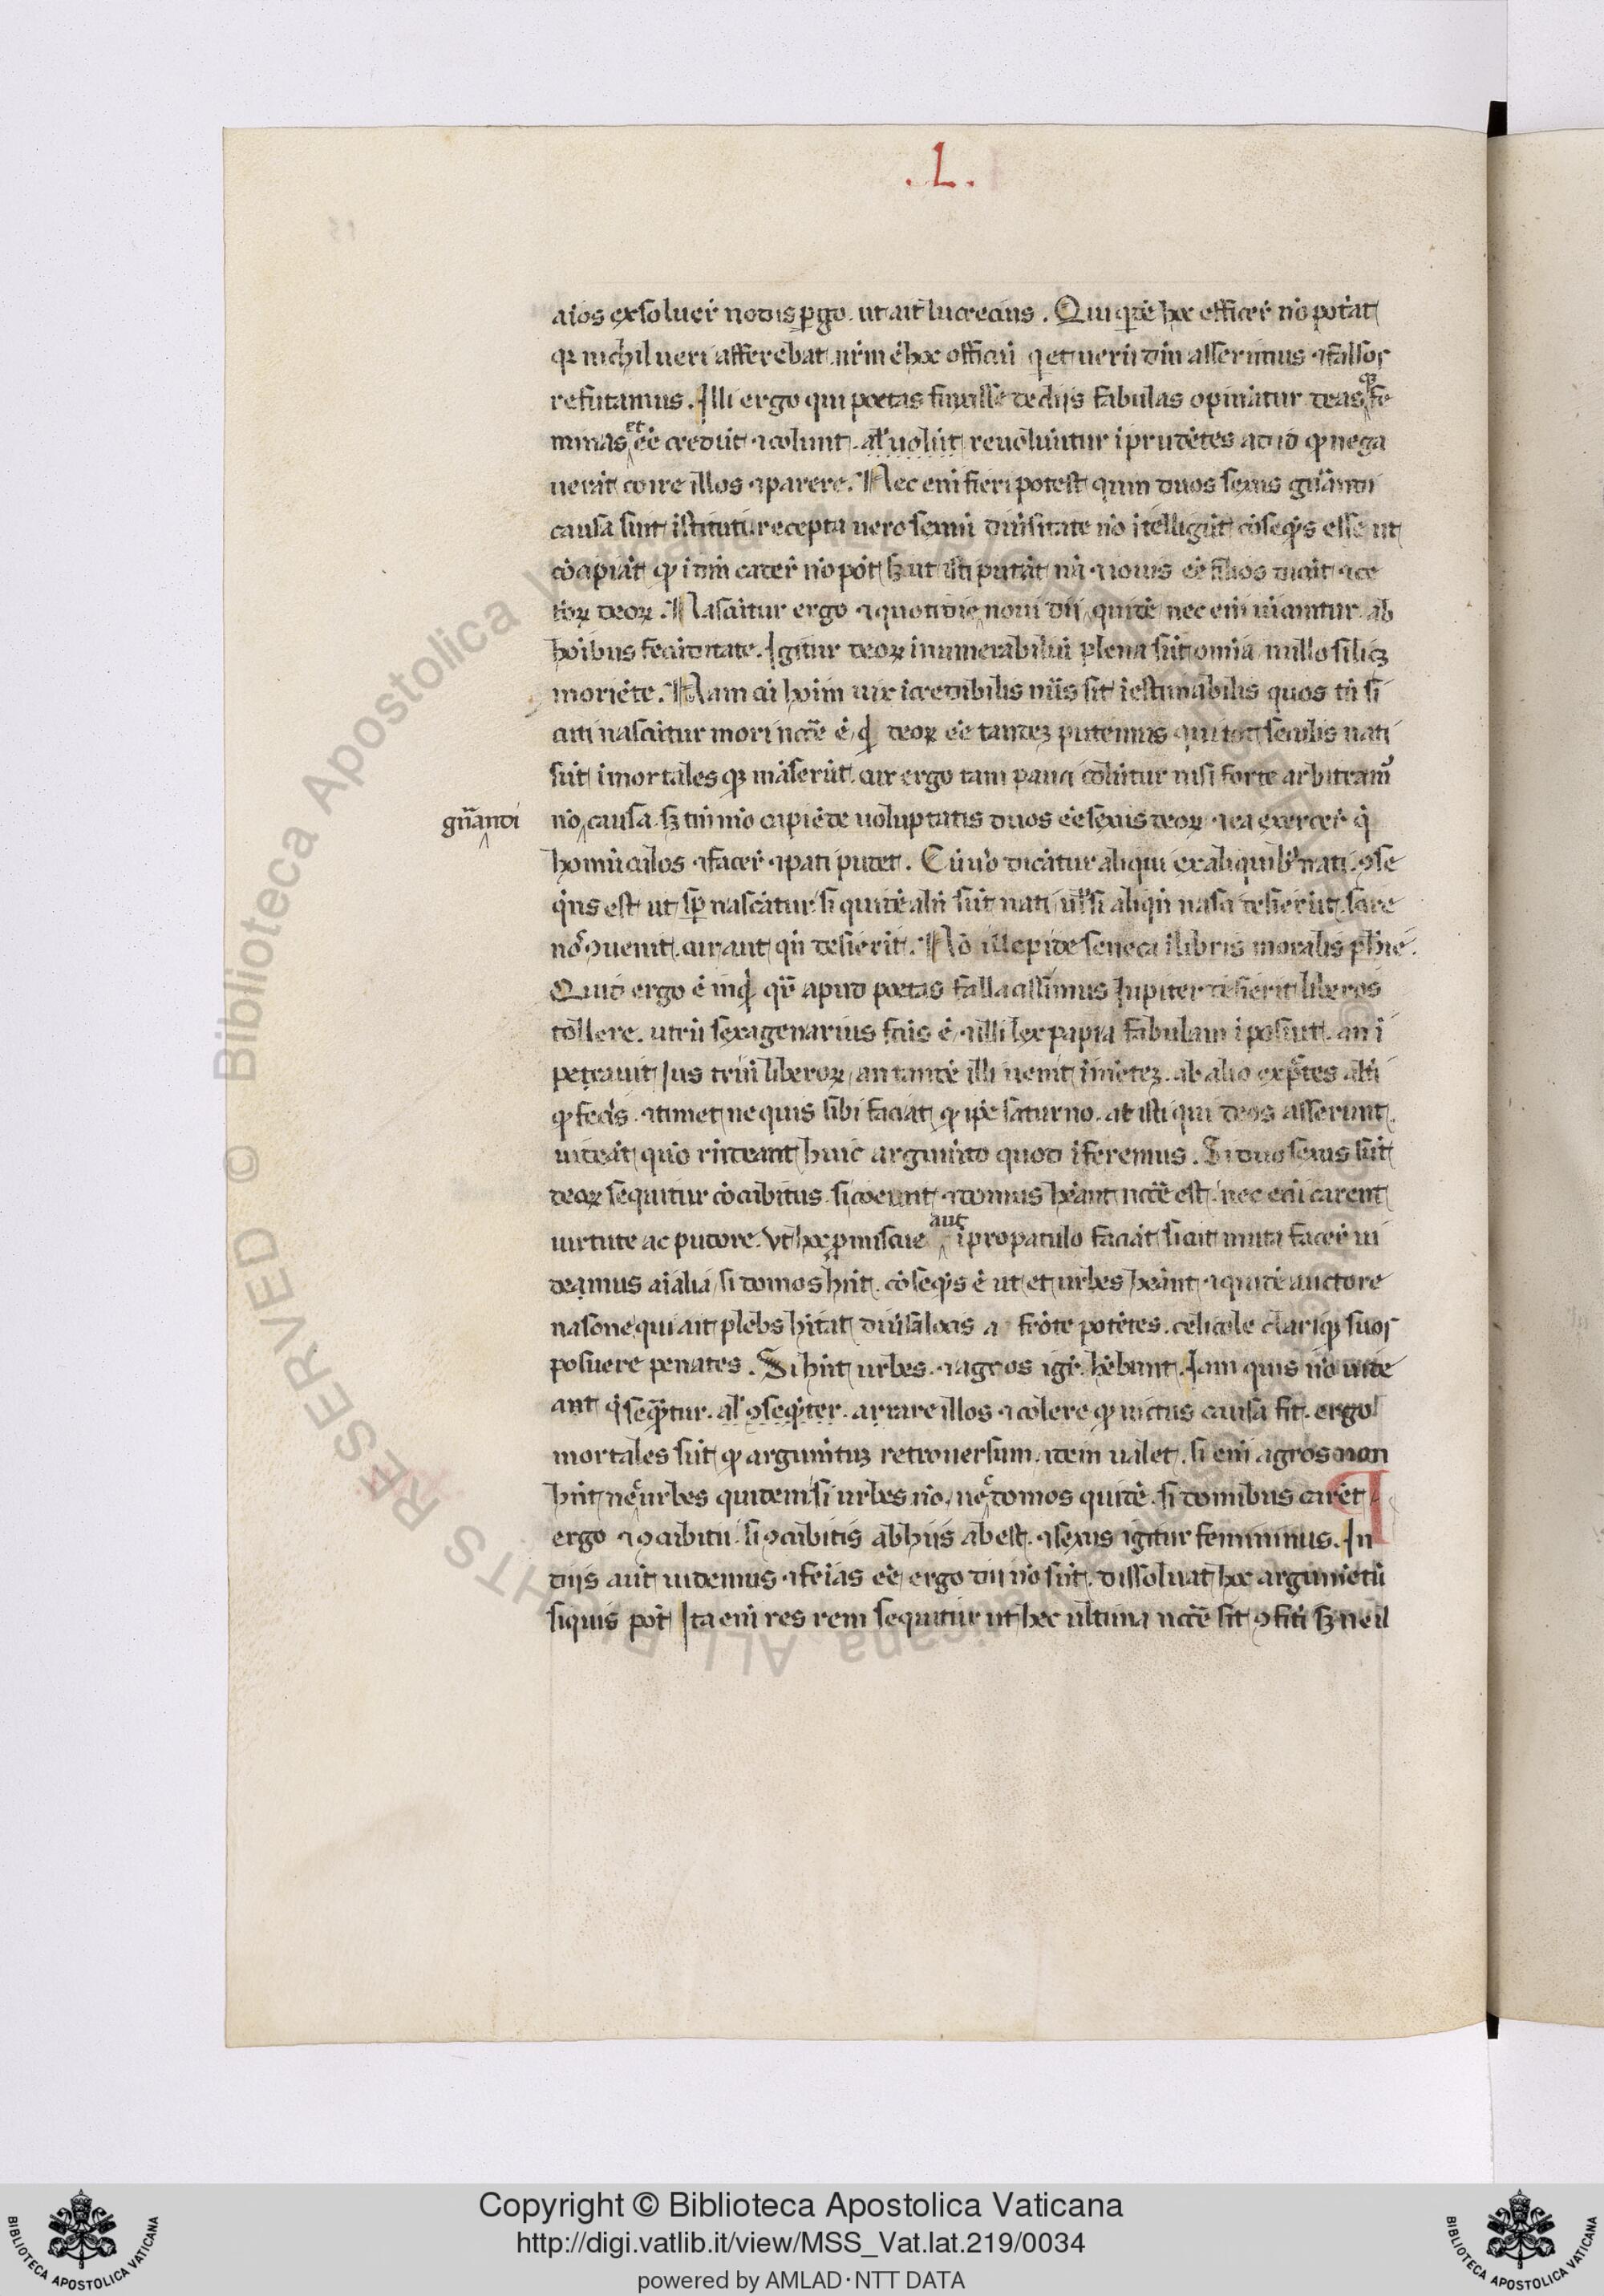 .L.
aīos exsoluer̄ nodis ꝑgo. ut ait lucrecius. Qui qͥdē hoc efficer̄ nō poterat
qꝛ nichil ueri afferebat. nr̄m ē hoc officiū qͥ et ueꝝ dm̄ asserimus ⁊ falsos
refutamus. Illi ergo qui poetas finxisse de diis fabulas opinātur deas qͦqꝫ fe
minas et eē credūt ⁊ colunt. al' uolūt reuoluūtur īprudētes ad id qḋ nega
uerāt coire illos ⁊ parere. Nec enī fieri potest quin duos sexus gn̄andi
causa sint īstituti recepta uero sexuū diuīsitate nō ītelligūt cōseq̄ns esse ut
cōcipiāt qḋ ī dm̄ cader̄ nō pōt sꝫ ut isti putāt nā ⁊ iouis eē filios dicūt ⁊ ce
toꝝ deoꝝ. Nascūtur ergo ⁊ quotidie noui dii quidē nec enī uīcuntur ab
hoībus fecūditate. Igitur deoꝝ īnumerabiliū plena sūt omīa nullo silicꝫ
moriēte. Nam cū hoīm uis īcredibilis nūs sit īestimabilis quos tn̄ si
cuti nascūtur mori nccē ē qͥd deoꝝ eē tandeꝫ putemus qui tot seculis nati
sūt īmortales qꝫ māserūt. cur ergo tam pauci colūtur nisi forte arbitram̄
gn̄andi
nō causa. sꝫ tm̄mō capiēde uoluptatis duos eē sexus deoꝝ ⁊ ea exercer̄ q̄
homūculos ⁊ facer̄ ⁊ pati pudet. Cū uͦ dicātur aliqui ex aliquibꝰ nati. ꝯse
q̄ns est ut sp̄ nascātur si quidē aliqn̄ sūt nati uł si aliqn̄ nasci desierūt. scire
nos ꝯuenit. cur aut qn̄ desierīt. Nō illepide seneca ī libris moralis ph̄ie.
Quid ergo ē inqͥt qr̄ apud poetas fallacissimus Iupiter desierit liberos
tollere. utrū sexagenarius fcūs ē ⁊ illi lex papia fabulam īposuit. an ī
petrauit Ius triū liberoꝝ an tandē illi uenit ī mēteꝫ. ab alio expc̄tes alt̄i
qḋ fecīs. ⁊ timet ne quis sibi faciat qḋ ip̄e saturno. at isti qui deos asserunt
uideāt quō rn̄deant huic argumēto quod īferemus. Si duo sexus sūt
deoꝝ sequitur cōcubitus. si coeunt ⁊ domus hēant nccē est. nec enī carent
uirtute ac pudore. vt hoc ꝓmiscue aut ī propatulo faciāt sicut muta facer̄ ui
deamus aīalia si domos hn̄t. cōseq̄ns ē ut et urbes hēant ⁊ quidē auctore
nasone qui ait plebs hītat diuīsa locis a frōte potētes. celicole clariqꝫ suos
posuere penates. Si hn̄t urbes. ⁊ agros igr̄ hēbunt. Iam quis nō uide
ant q̄ sequūtur. al' ꝯseqūter. arrare illos ⁊ colere qḋ uictus causa fit. ergo
mortales sūt qḋ argumtuꝫ retrouersum. idem ualet. si enī agros non
hn̄t nec urbes quidem. si urbes nō nec domos quidē. si domibus carēt
ergo ⁊ ꝯcubitu. si ꝯcubitus ab hiis abest. ⁊ sexus igitur femininus. In
diis aūt uidemus ⁊ feīas eē ergo dii nō sūt. dissoluat hoc argumētū
siquis pōt Ita enī res rem sequitur ut hec ultima nccē sit ꝯfiti sꝫ ne il
Copyright © Biblioteca Apostolica Vaticana
http://digi.vatlib.it/view/MSS_Vat.lat.219/0034
powered by AMLAD·NTT DATA
BIBLIOTECA APOSTOLICA VATICANA
BIBLIOTECA APOSTOLICA VATICANA